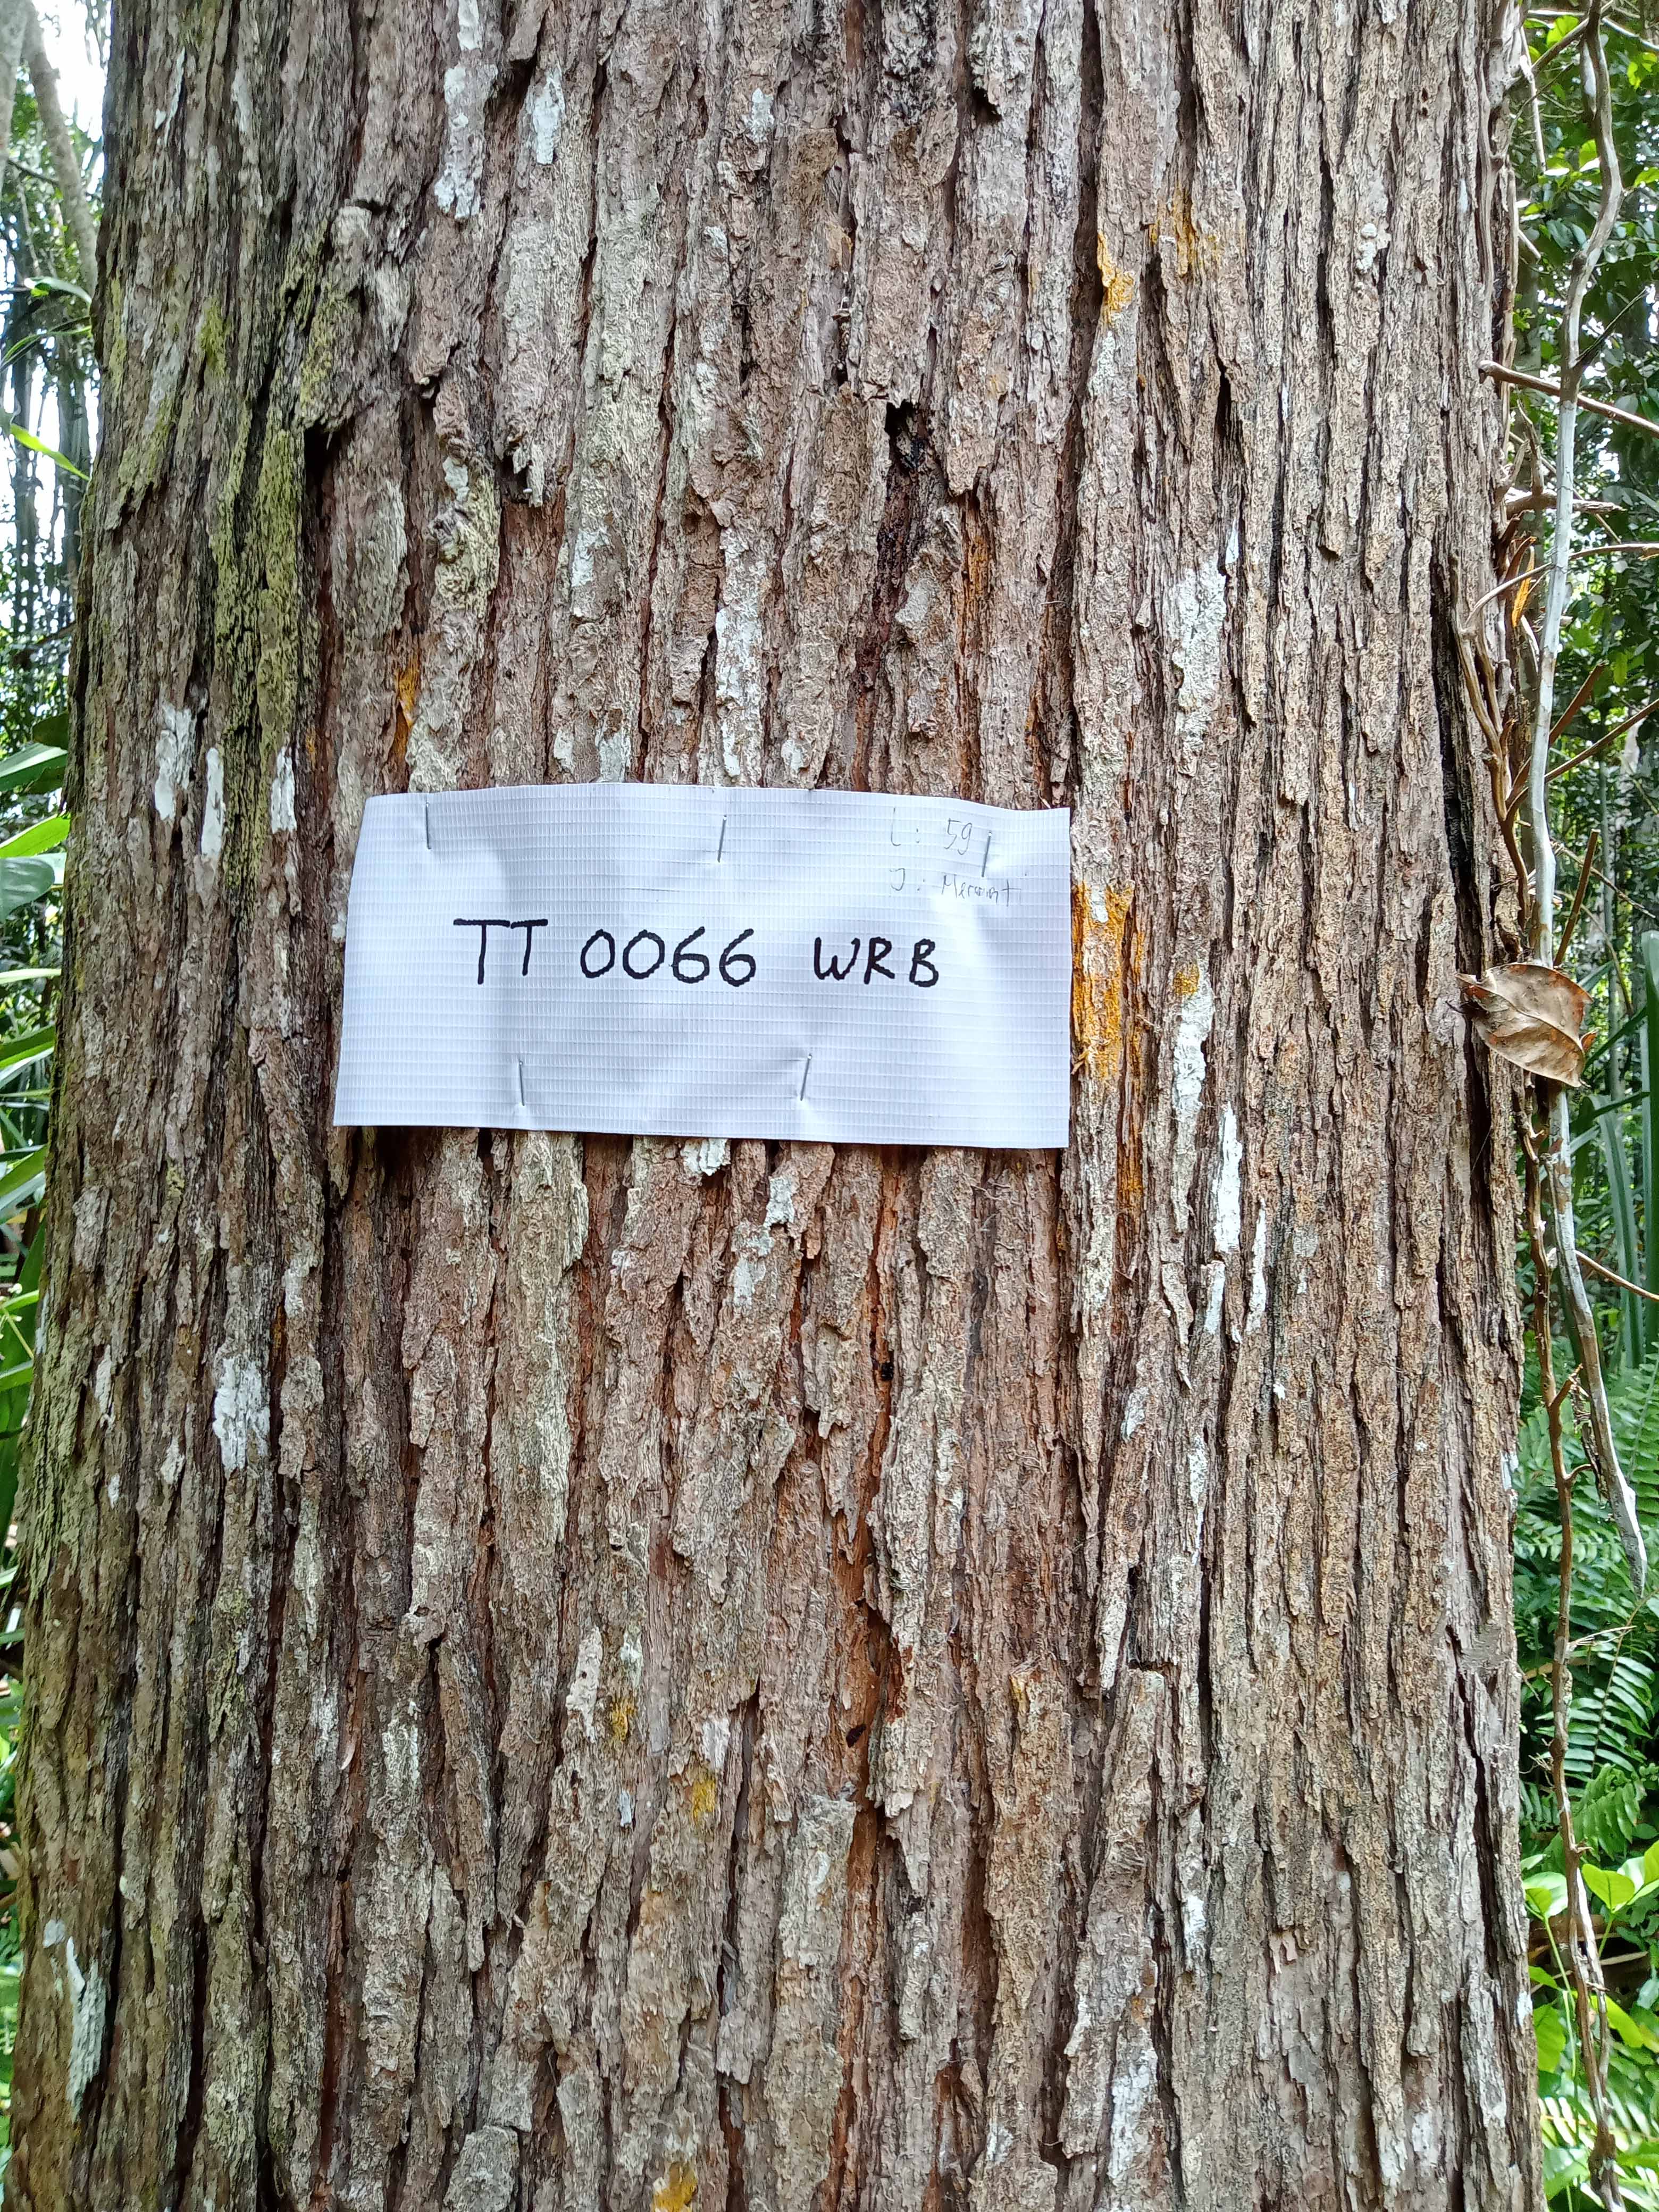 L : 59
J : Meranti
TT 0066 WRB